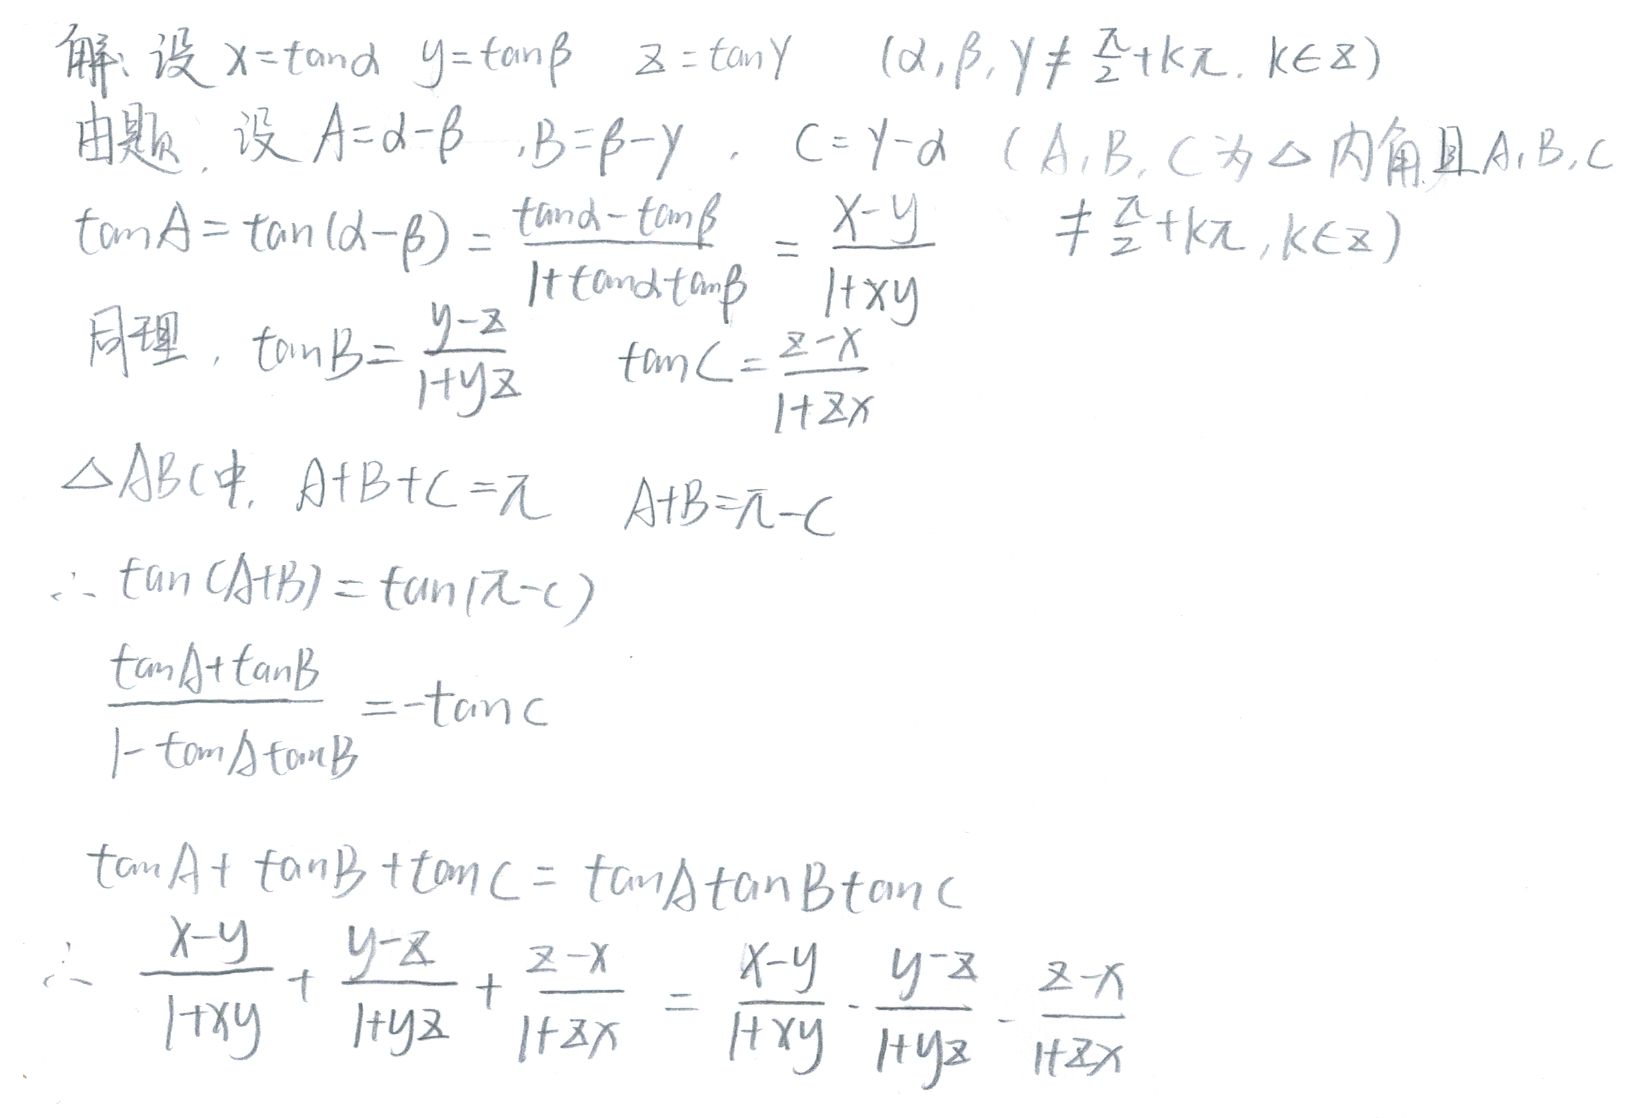 解: 设 x=tanα y=tanβ z=tanγ (α,β,γ≠π/2+kπ. k∈z)
由题, 设 A=α-β ,B=β-γ , C=γ-α (A,B,C为△内角且A,B,C
≠π/2+kπ,k∈z)
tanA=tan(α-β)=(tanα-tanβ)/(1+tanαtanβ)=(x-y)/(1+xy)
同理, tanB=(y-z)/(1+yz) tanC=(z-x)/(1+zx)
△ABC中, A+B+C=π A+B=π-C
∴ tan(A+B)=tan(π-c)
(tanA+tanB)/(1-tanAtanB)=-tanc
tanA+tanB+tanC=tanAtanBtanC
∴ (x-y)/(1+xy)+(y-z)/(1+yz)+(z-x)/(1+zx)=(x-y)/(1+xy)·(y-z)/(1+yz)·(z-x)/(1+zx)